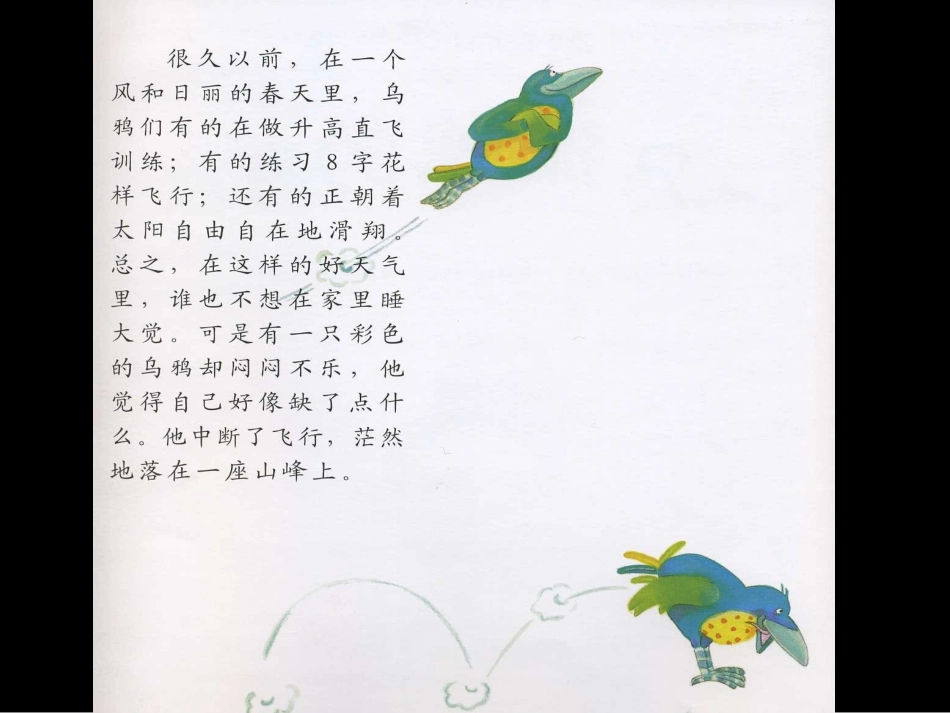 很久以前，在一个
风和日丽的春天里，乌
鸦们有的在做升高直飞
训练；有的练习8字花
样飞行；还有的正朝着
太阳自由自在地滑翔。
总之，在这样的好天气
里，谁也不想在家里睡
大觉。可是有一只彩色
的乌鸦却闷闷不乐，他
觉得自己好像缺了点什
么。他中断了飞行，茫然
地落在一座山峰上。